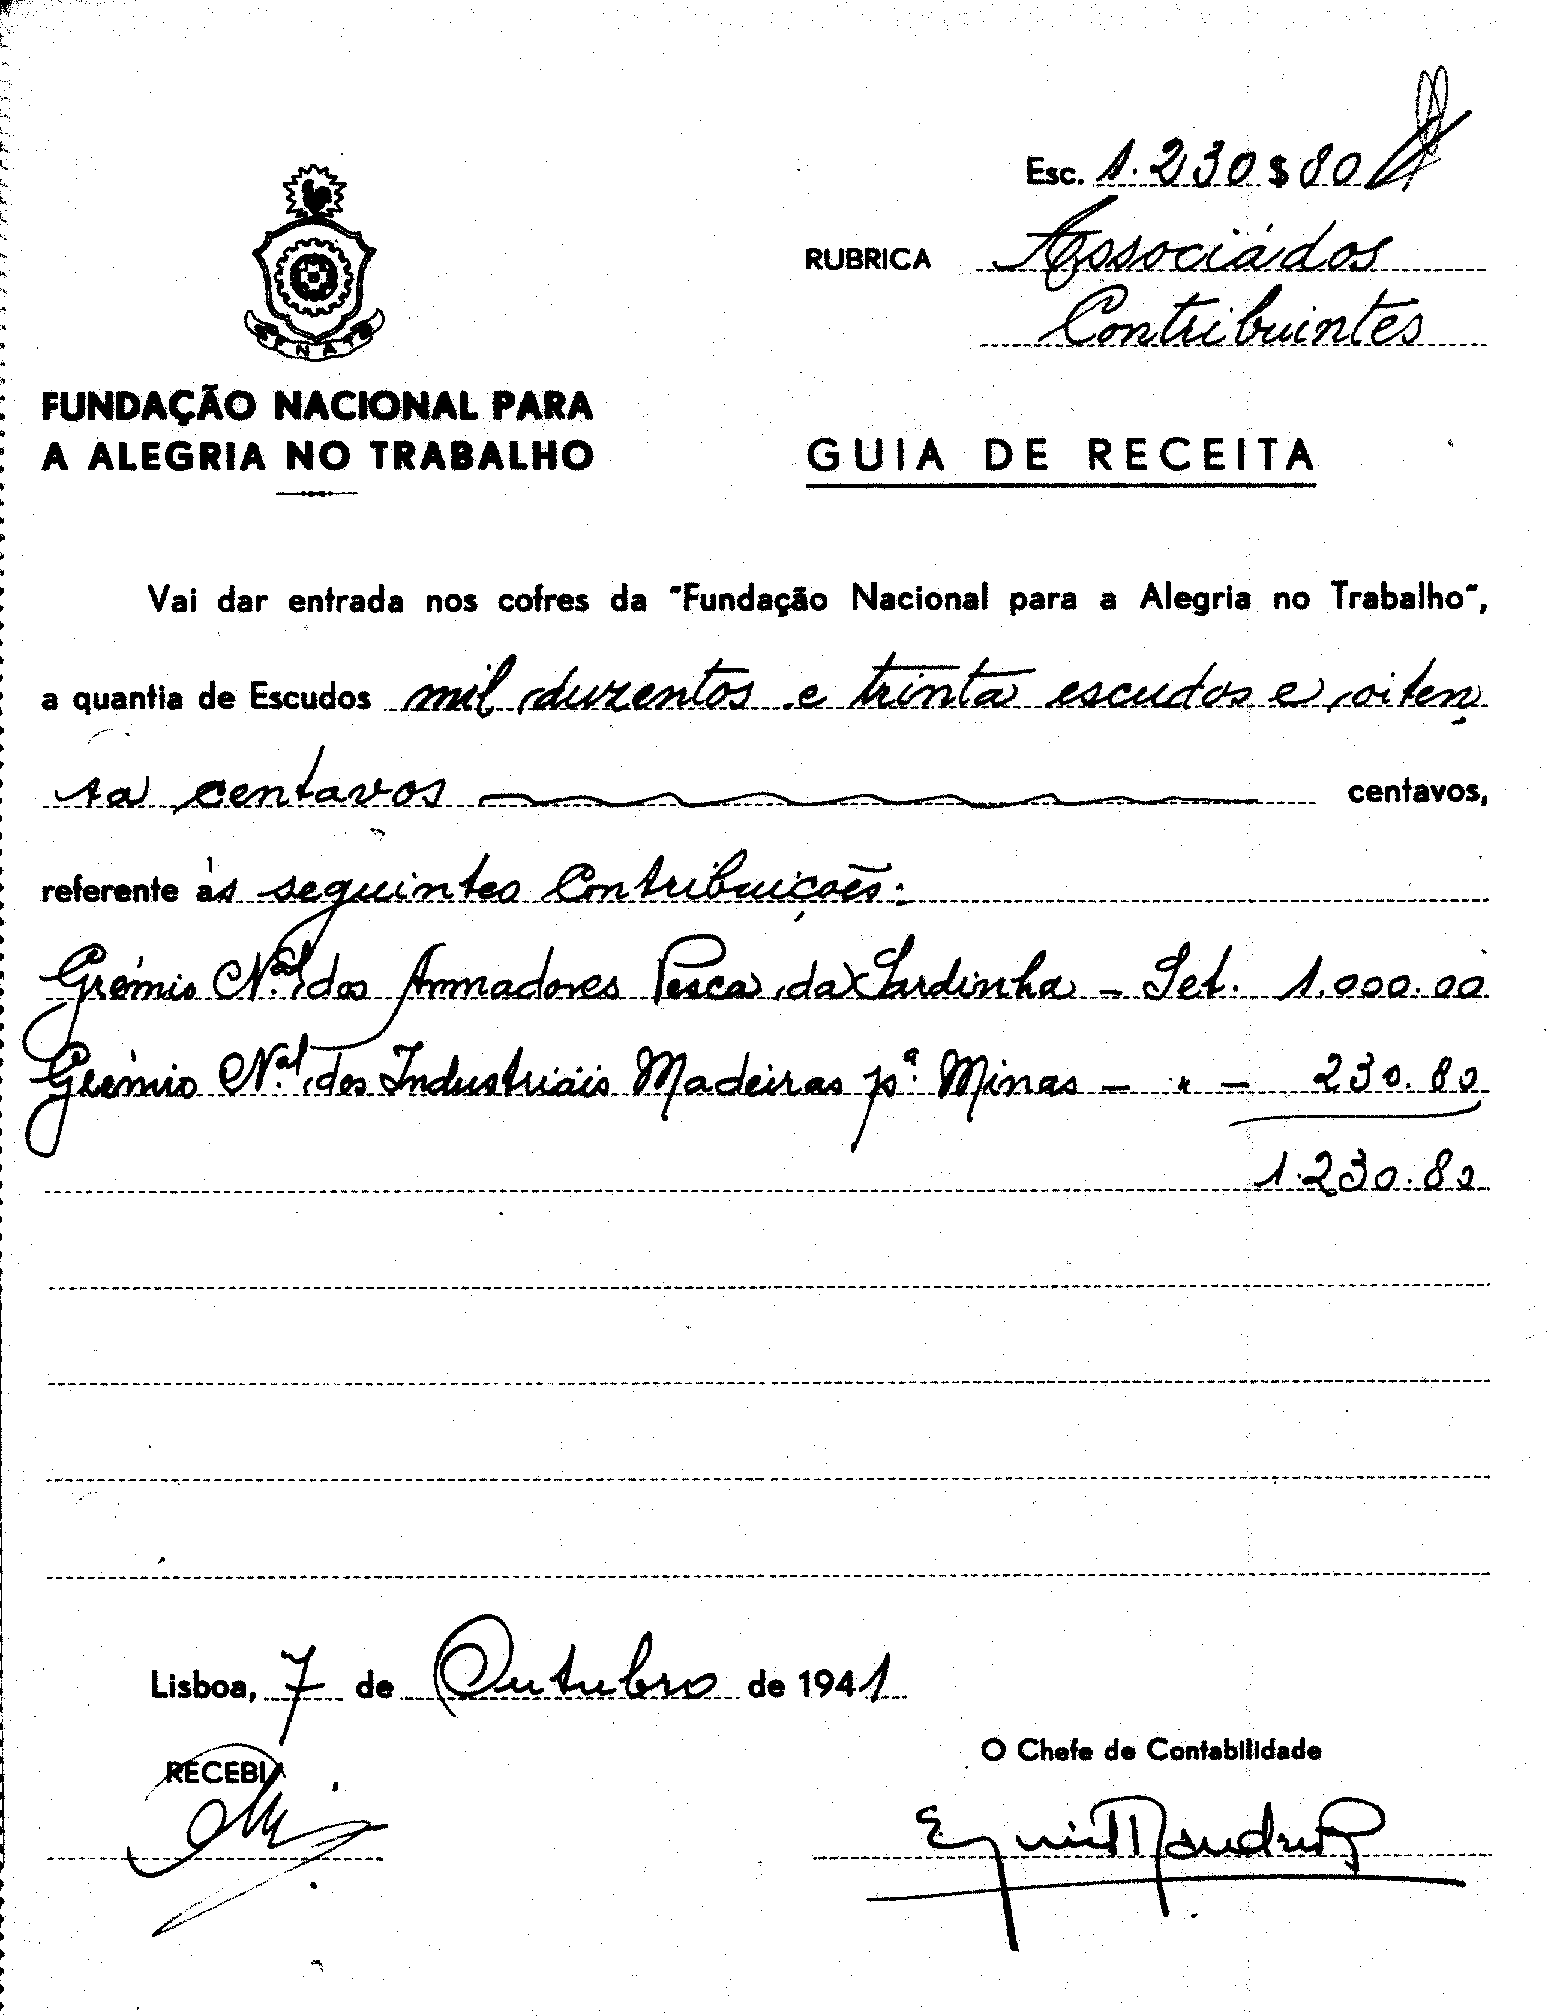 Esc. 1.230$80
RUBRICA Associádos
Contribuintes
FENAT
FUNDAÇÃO NACIONAL PARA
A ALEGRIA NO TRABALHO
GUIA DE RECEITA
Vai dar entrada nos cofres da "Fundação Nacional para a Alegria no Trabalho",
a quantia de Escudos mil duzentos e trinta escudos e oiten
ta centavos centavos,
referente às seguintes Contribuições:
Grémio N.al dos Armadores Pesca da Sardinha - Set. 1.000.00
Grémio N.al dos Industriais Madeiras pª. Minas - " - 230.80
1.230.80
Lisboa, 7 de Outubro de 1941
O Chefe de Contabilidade
RECEBI